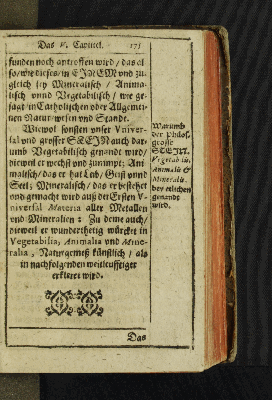 Das V. Capitel. 175
funden noch antroffen wird / das es
so / wie dieses / in EINEM und zu-
gleich sey Mineralisch / Anima-
lisch vnnd Vegetabilisch / wie ge-
sagt / in Catholischen oder Allgemei-
nen Natur wesen und Stande.
Wiewol sonsten unser Vniver-
sal und grosser STEIN auch dar-
umb Vegetabilisch genandt wird /
dieweil er wechst und zunimpt; Ani
malisch / das er hat Leib / Geist vnnd
Seel; Mineralisch / das er bestehet
und gemacht wird auß der Ersten V-
niversal Materia aller Metallen
und Mineralien: Zu deme auch /
dieweil er wunderthetig würcket in
Vegetabilia, Animalia und Mine-
ralia, Naturgemeß künstlich / als
in nachfolgenden weitleufftiger
erkleret wird.
Warumb
der Philos.
grosse
STEIN,
Vegetabilis,
Animalis &
Mineralis,
genandt
wird.
Das